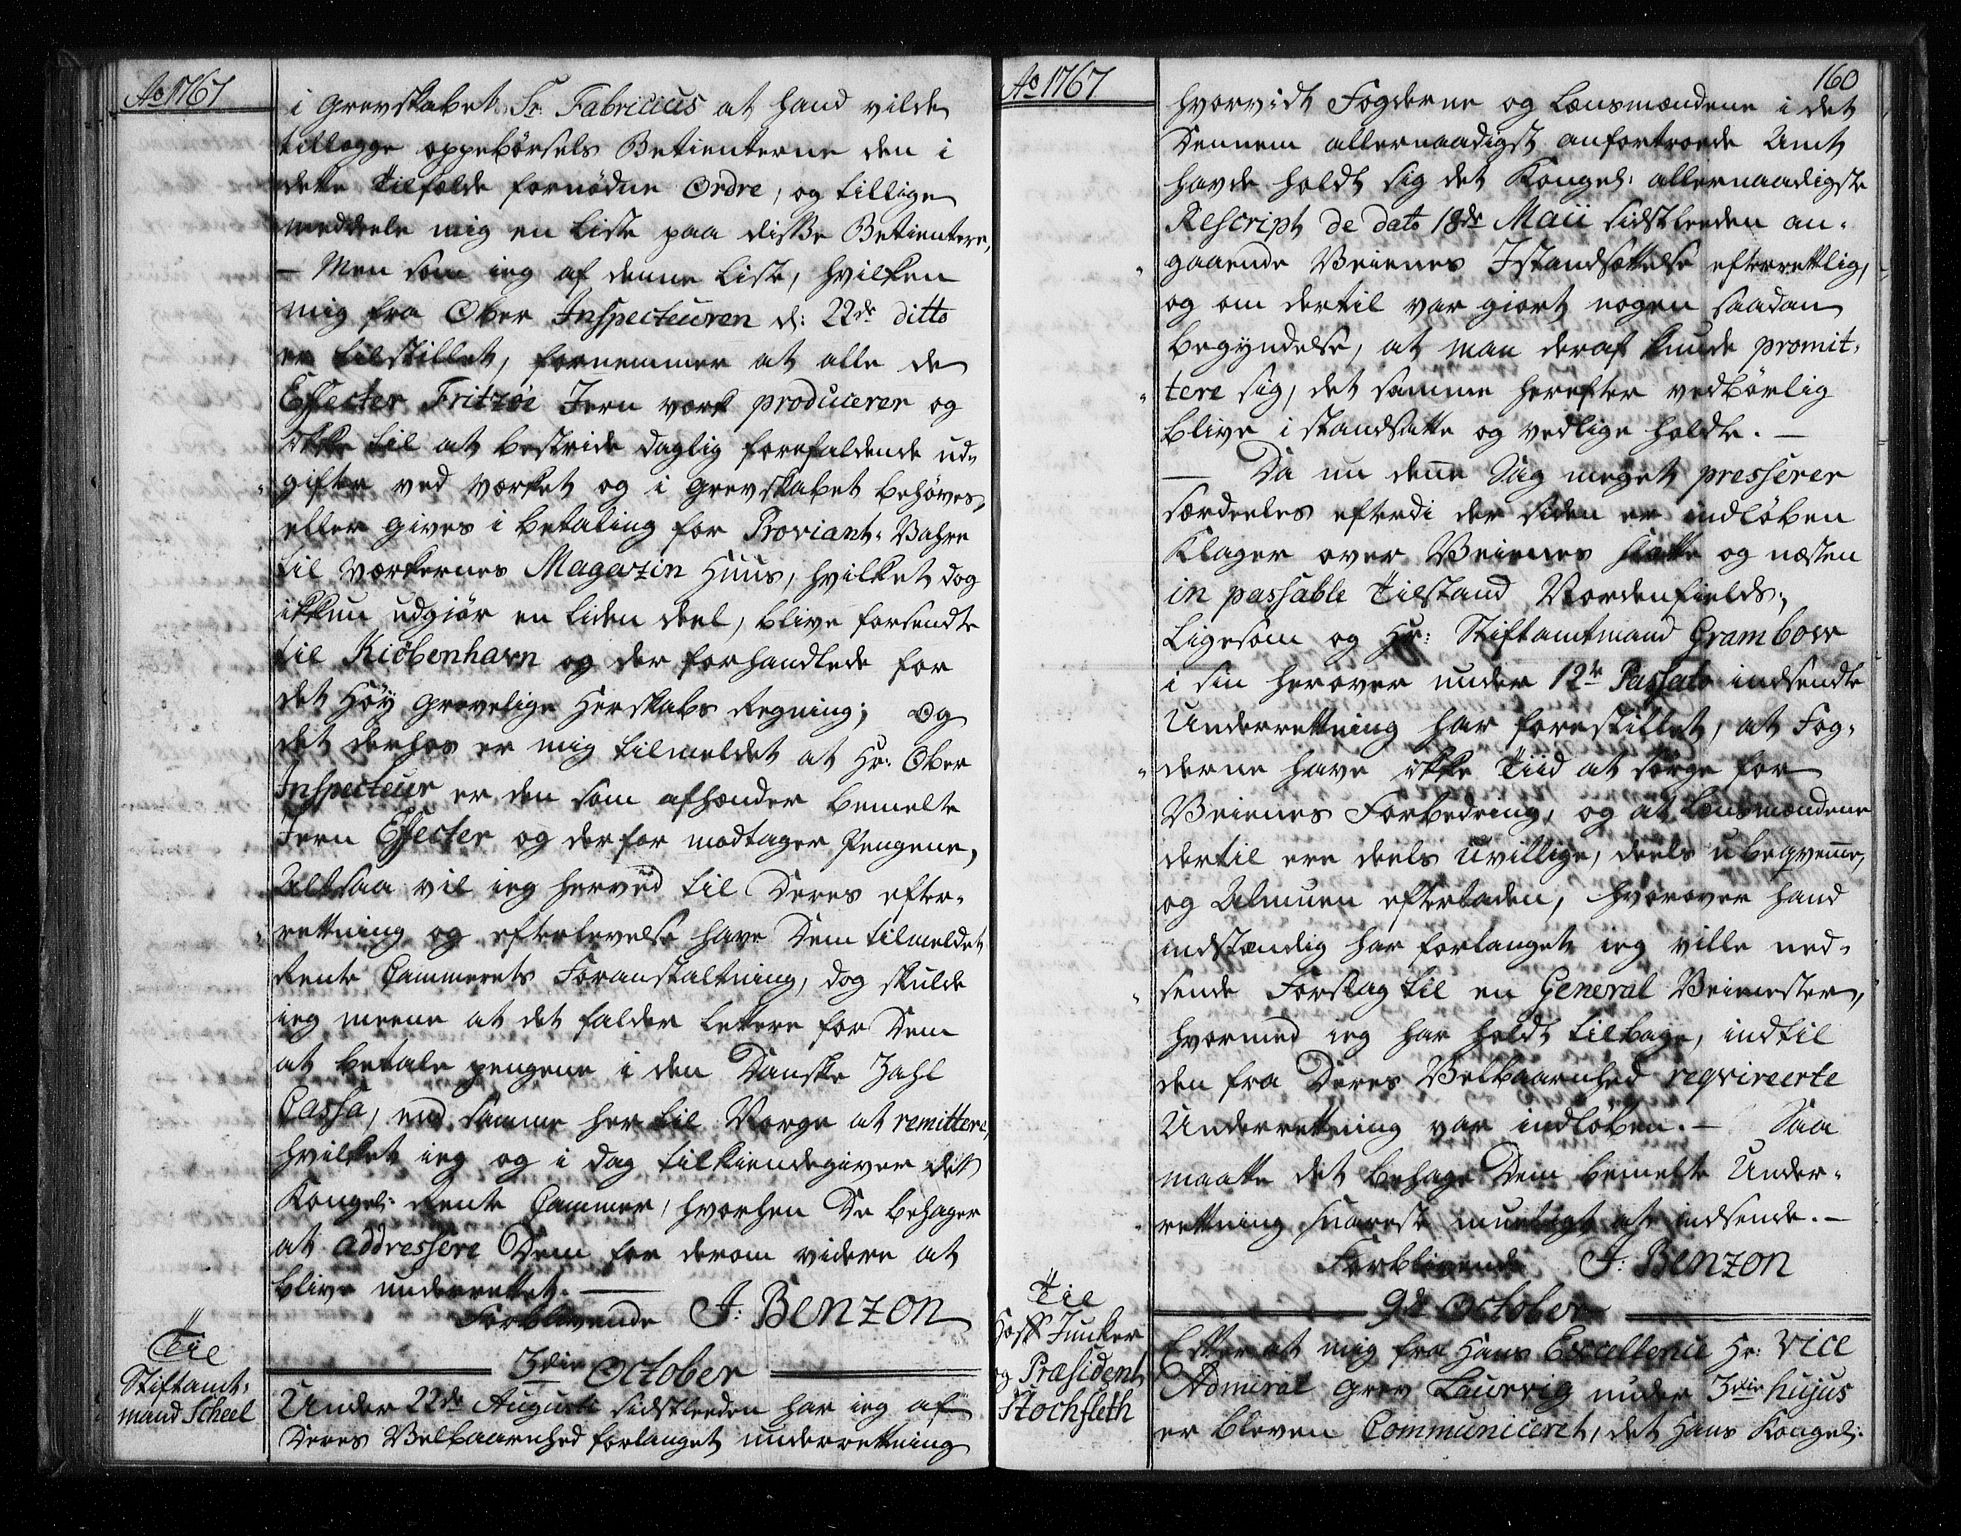 Ao 1767
i Grevskabet Sr. Fabricius at hand vilde
tillegge oppebörsels Betienterne den i
dette Tilfælde fornödne Ordre, og tillige
meddeele mig en Liste paa disse Betientere,
— Men som ieg af denne Liste, hvilken
mig fra Ober Inspecteuren d: 22de ditto
er tilstillet, fornemmer at alle de
Effecter Fritzöe Jern værk producerer og
ikke til at bestride daglig forefaldende ud-
gifter ved værket og i Grevskabet behöves,
eller gives i betaling for Proviant-Vahre
til Værkernes Magazin Huus, hvilket dog
ikkun udgiör en liden deel, blive forsendte
til Kiöbenhavn og der forhandlede for
det Höy Grevelige Herskabs Regning; og
det derhos er mig tilmeldet at Hr: Ober
Inspecteur er den som afhænder bemelte
Jern Effecter og derfor modtager Pengene,
Altsaa vil ieg herved til Deres efter-
rettning og efterlevelse have Dem tilmeldet
Rente Cammerets Foranstaltning, dog skulde
ieg meene at det falder lettere for Dem
at betale pengene i den Danske Zahl
Cassa, end samme her til Norge at remittere,
hvilket ieg og i dag tilkiendegiver det
Kongel: Rente Cammer, hvorhen De behager
at addressere Dem for derom videre at
blive underrettet. —
Forblivende J: Benzon
Til
Stiftamt-
mand Scheel
3die October
Under 22de Augusti sidstleeden har ieg af
Deres Velbaarnhed forlanget underrettning
Ao 1767
160
hvorvidt Fogderne og Lensmændene i det
Dennem allernaadigst anfortroede Amt
havde holdt sig det Kongel: allernaadigste
Rescript de dato 18de Maii sidstleeden an-
gaaende Veienes Istandsættelse efterrettlig,
og om dertil var giort nogen saadan
begyndelse, at man deraf kunde promit-
tere sig, det samme herefter vedbörlig
blive i standsatte og vedlige holdte. —
— Da nu denne Sag meget presserer
særdeeles efterdi der siden er indlöben
Klager over Veienes slætte og næsten
in passable Tilstand Nordenfields;
Ligesom og Hr: Stiftamtmand Grambow
i sin herover under 12te Passato indsendte
Underrettning har forestillet, at Fog-
derne have ikke Tiid at sörge for
Veienes Forbedring, og at Lensmændene
dertil ere deels uvillige, deels ubeqvemme,
og Almuen efterladen, hvorover hand
indstændig har forlanget ieg ville ned-
sende Forslag til en General Veimester,
hvormed ieg har holdt tilbage, indtil
den fra Deres Velbaarnhed reqvireerte
Underrettning var indlöben. — Saa
maatte det behage Dem bemelte Under-
rettning snarest mueligt at indsende. —
Forblivende J: Benzon
Til
Hoff Juncker
og Præsident
Stochfleth
9de October
Efter at mig fra Hans Excellence Hr: Vice
Admiral Grev Laurvig under 3die hujus
er bleven Communiceret, det Hans Kongel: